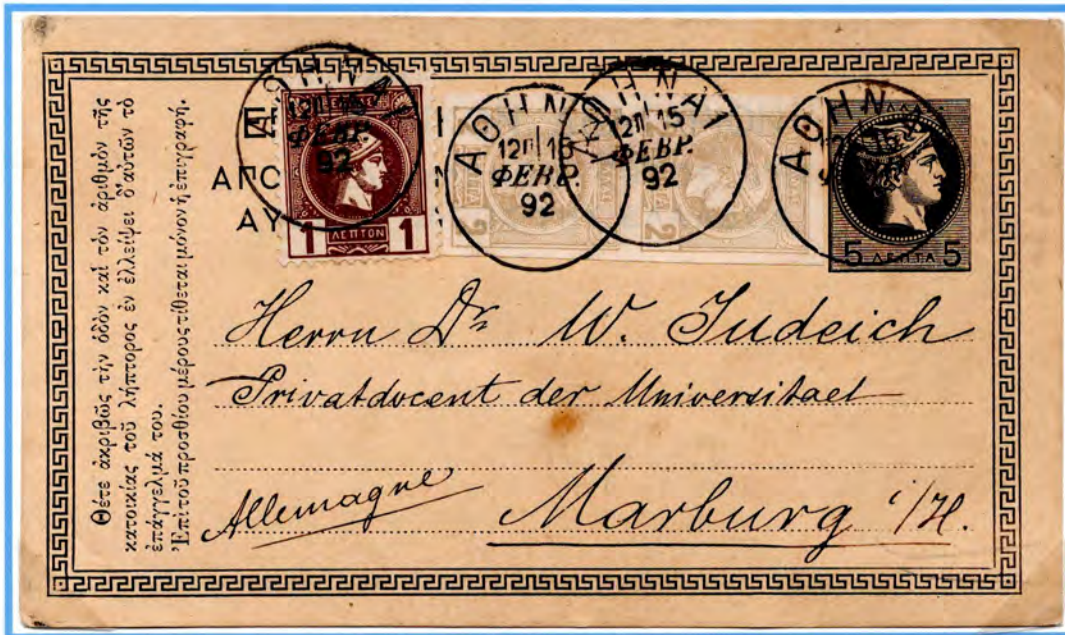 Θέτε ἀκριβῶς τὴν ὁδὸν καὶ τὸν ἀριθμὸν τῆς
κατοικίας τοῦ λήπτορος ἐν ἐλλείψει δ' αὐτῶν τὸ
ἐπάγγελμά του.
Ἐπὶ τοῦ προσθίου μέρους τίθεται μόνον ἡ ἐπιγραφή.
ΑΘΗΝΑΙ
ΦΕΒΡ.
92
1 ΛΕΠΤΟΝ 1
ΑΘΗΝ
12Π 15
ΦΕΒΡ.
92
2
ΑΘΗΝΑΙ 1
12Π 15
ΦΕΒΡ.
92
2
ΑΘΗΝ
5 ΛΕΠΤΑ 5
ΑΠΟ
ΑΥ
Herrn Dr W. Judeich
Privatdocent der Universitaet
Allemagne
Marburg i/H.